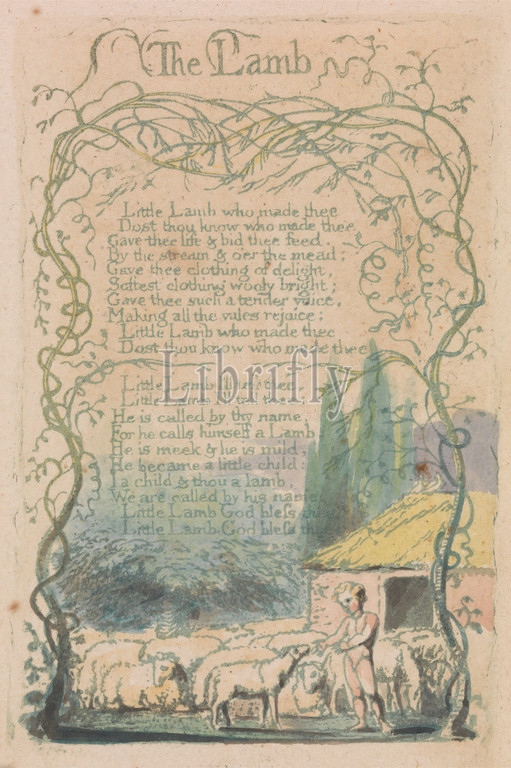 The Lamb
Little Lamb who made thee
Dost thou know who made thee
Gave thee life & bid thee feed.
By the stream & o'er the mead;
Gave thee clothing of delight,
Softest clothing wooly bright;
Gave thee such a tender voice,
Making all the vales rejoice;
Little Lamb who made thee
Dost thou know who made thee
Librifly
Little Lamb I'll tell thee
Little Lamb I'll tell thee
He is called by thy name,
For he calls himself a Lamb
He is meek & he is mild,
He became a little child:
I a child & thou a lamb,
We are called by his name
Little Lamb God bleſs thee
Little Lamb God bleſs thee
Librifly